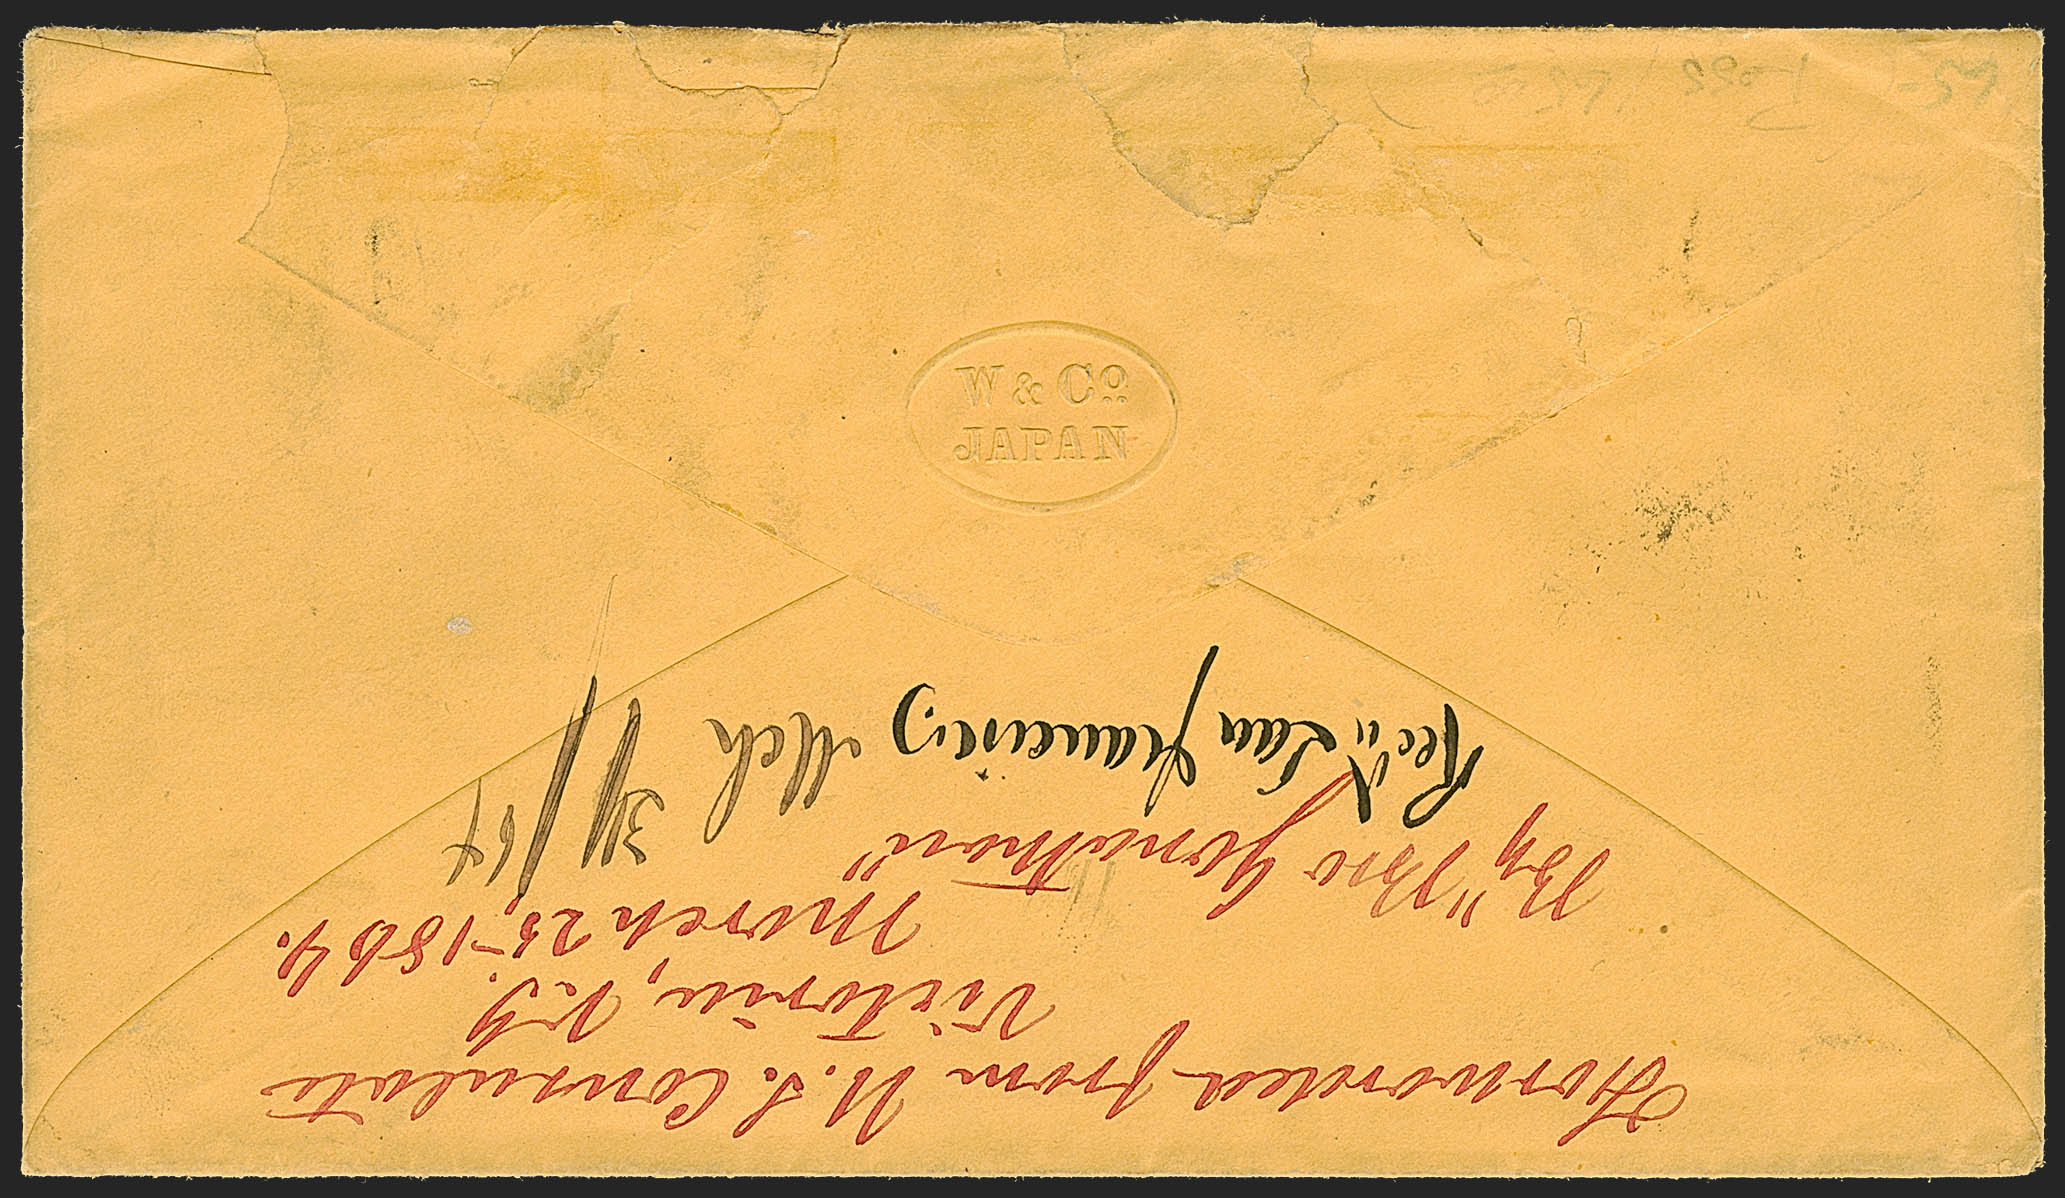 W & Co.
JAPAN
Forwarded from U.S. Consulate
Victoria, V.I.
March 25, 1864.
By "Bro Jonathan"
Rec'd San Francisco Mch 31/64